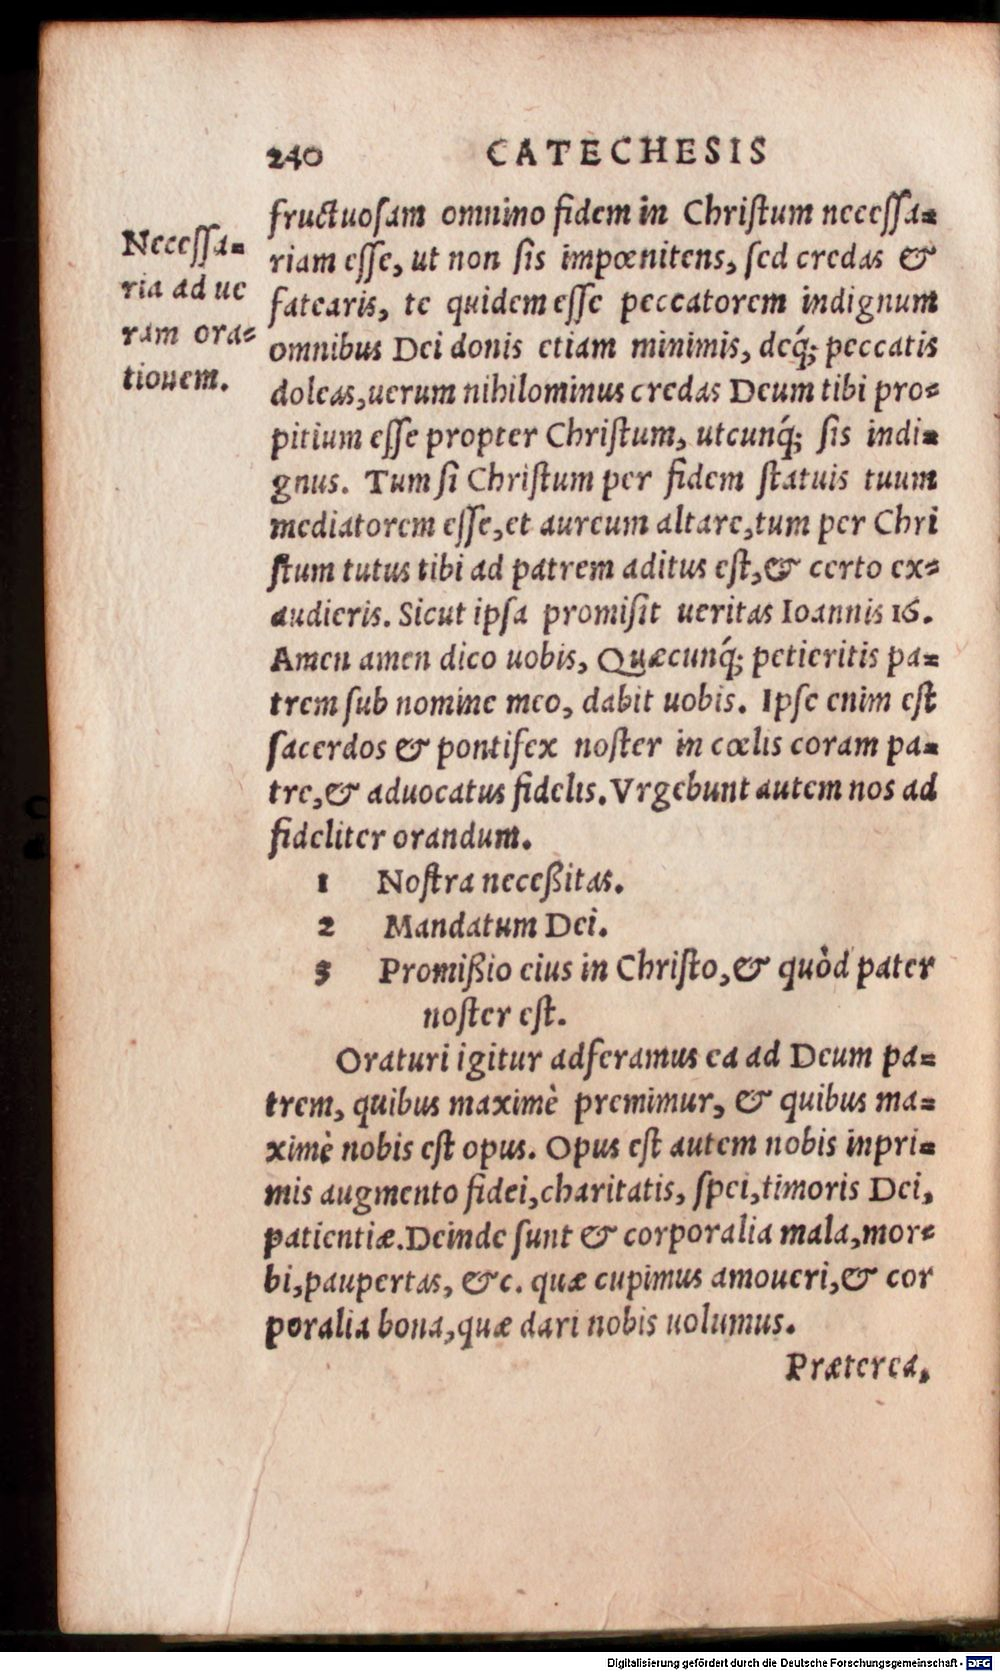 240 CATECHESIS
fructuoſam omnino fidem in Chriſtum neceſſa=
riam eſſe, ut non ſis impœnitens, ſed credas &
fatearis, te quidem eſſe peccatorem indignum
omnibus Dei donis etiam minimis, deq́; peccatis
doleas, uerum nihilominus credas Deum tibi pro=
pitium eſſe propter Chriſtum, utcunq́; ſis indi=
gnus. Tum ſi Chriſtum per fidem ſtatuis tuum
mediatorem eſſe, et aureum altare, tum per Chri
ſtum tutus tibi ad patrem aditus eſt, & certo ex=
audieris. Sicut ipſa promiſit ueritas Ioannis 16.
Amen amen dico uobis, Quæcunq́; petieritis pa=
trem ſub nomine meo, dabit uobis. Ipſe enim eſt
ſacerdos & pontifex noſter in cœlis coram pa=
tre, & aduocatus fidelis. Vrgebunt autem nos ad
fideliter orandum.
1 Noſtra neceßitas.
2 Mandatum Dei.
3 Promißio eius in Chriſto, & quòd pater
noſter eſt.
Oraturi igitur adferamus ea ad Deum pa=
trem, quibus maximè premimur, & quibus ma=
ximè nobis eſt opus. Opus eſt autem nobis inpri=
mis augmento fidei, charitatis, ſpei, timoris Dei,
patientiæ. Deinde ſunt & corporalia mala, mor=
bi, paupertas, &c. quæ cupimus amoueri, & cor
poralia bona, quæ dari nobis uolumus.
Præterea,
Neceſſa=
ria ad ue
ram ora=
tionem.
Digitalisierung gefördert durch die Deutsche Forschungsgemeinschaft - DFG